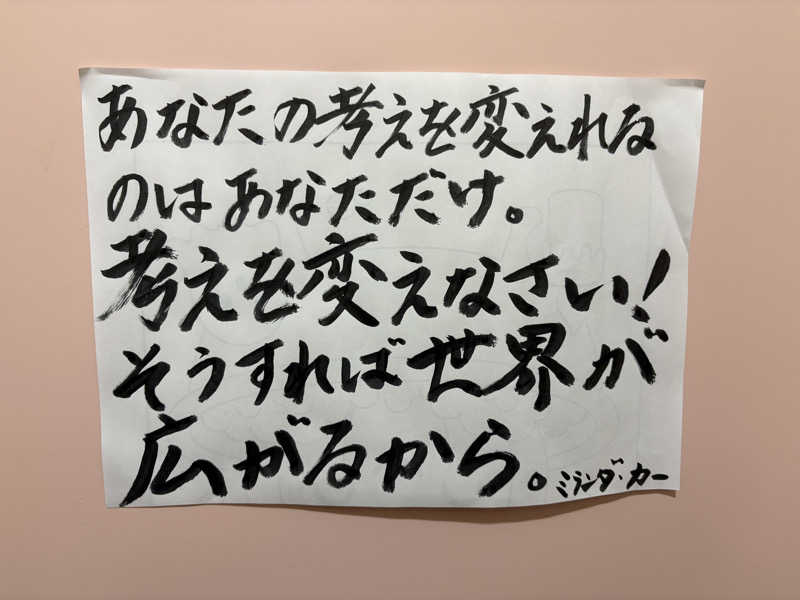 あなたの考えを変えれる
のはあなただけ。
考えを変えなさい!
そうすれば世界が
広がるから。ミランダ・カー